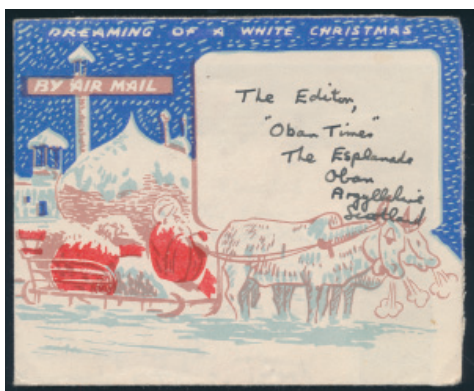 DREAMING OF A WHITE CHRISTMAS
BY AIR MAIL
The Editor,
"Oban Times"
The Esplanade
Oban
Argyllshire
Scotland